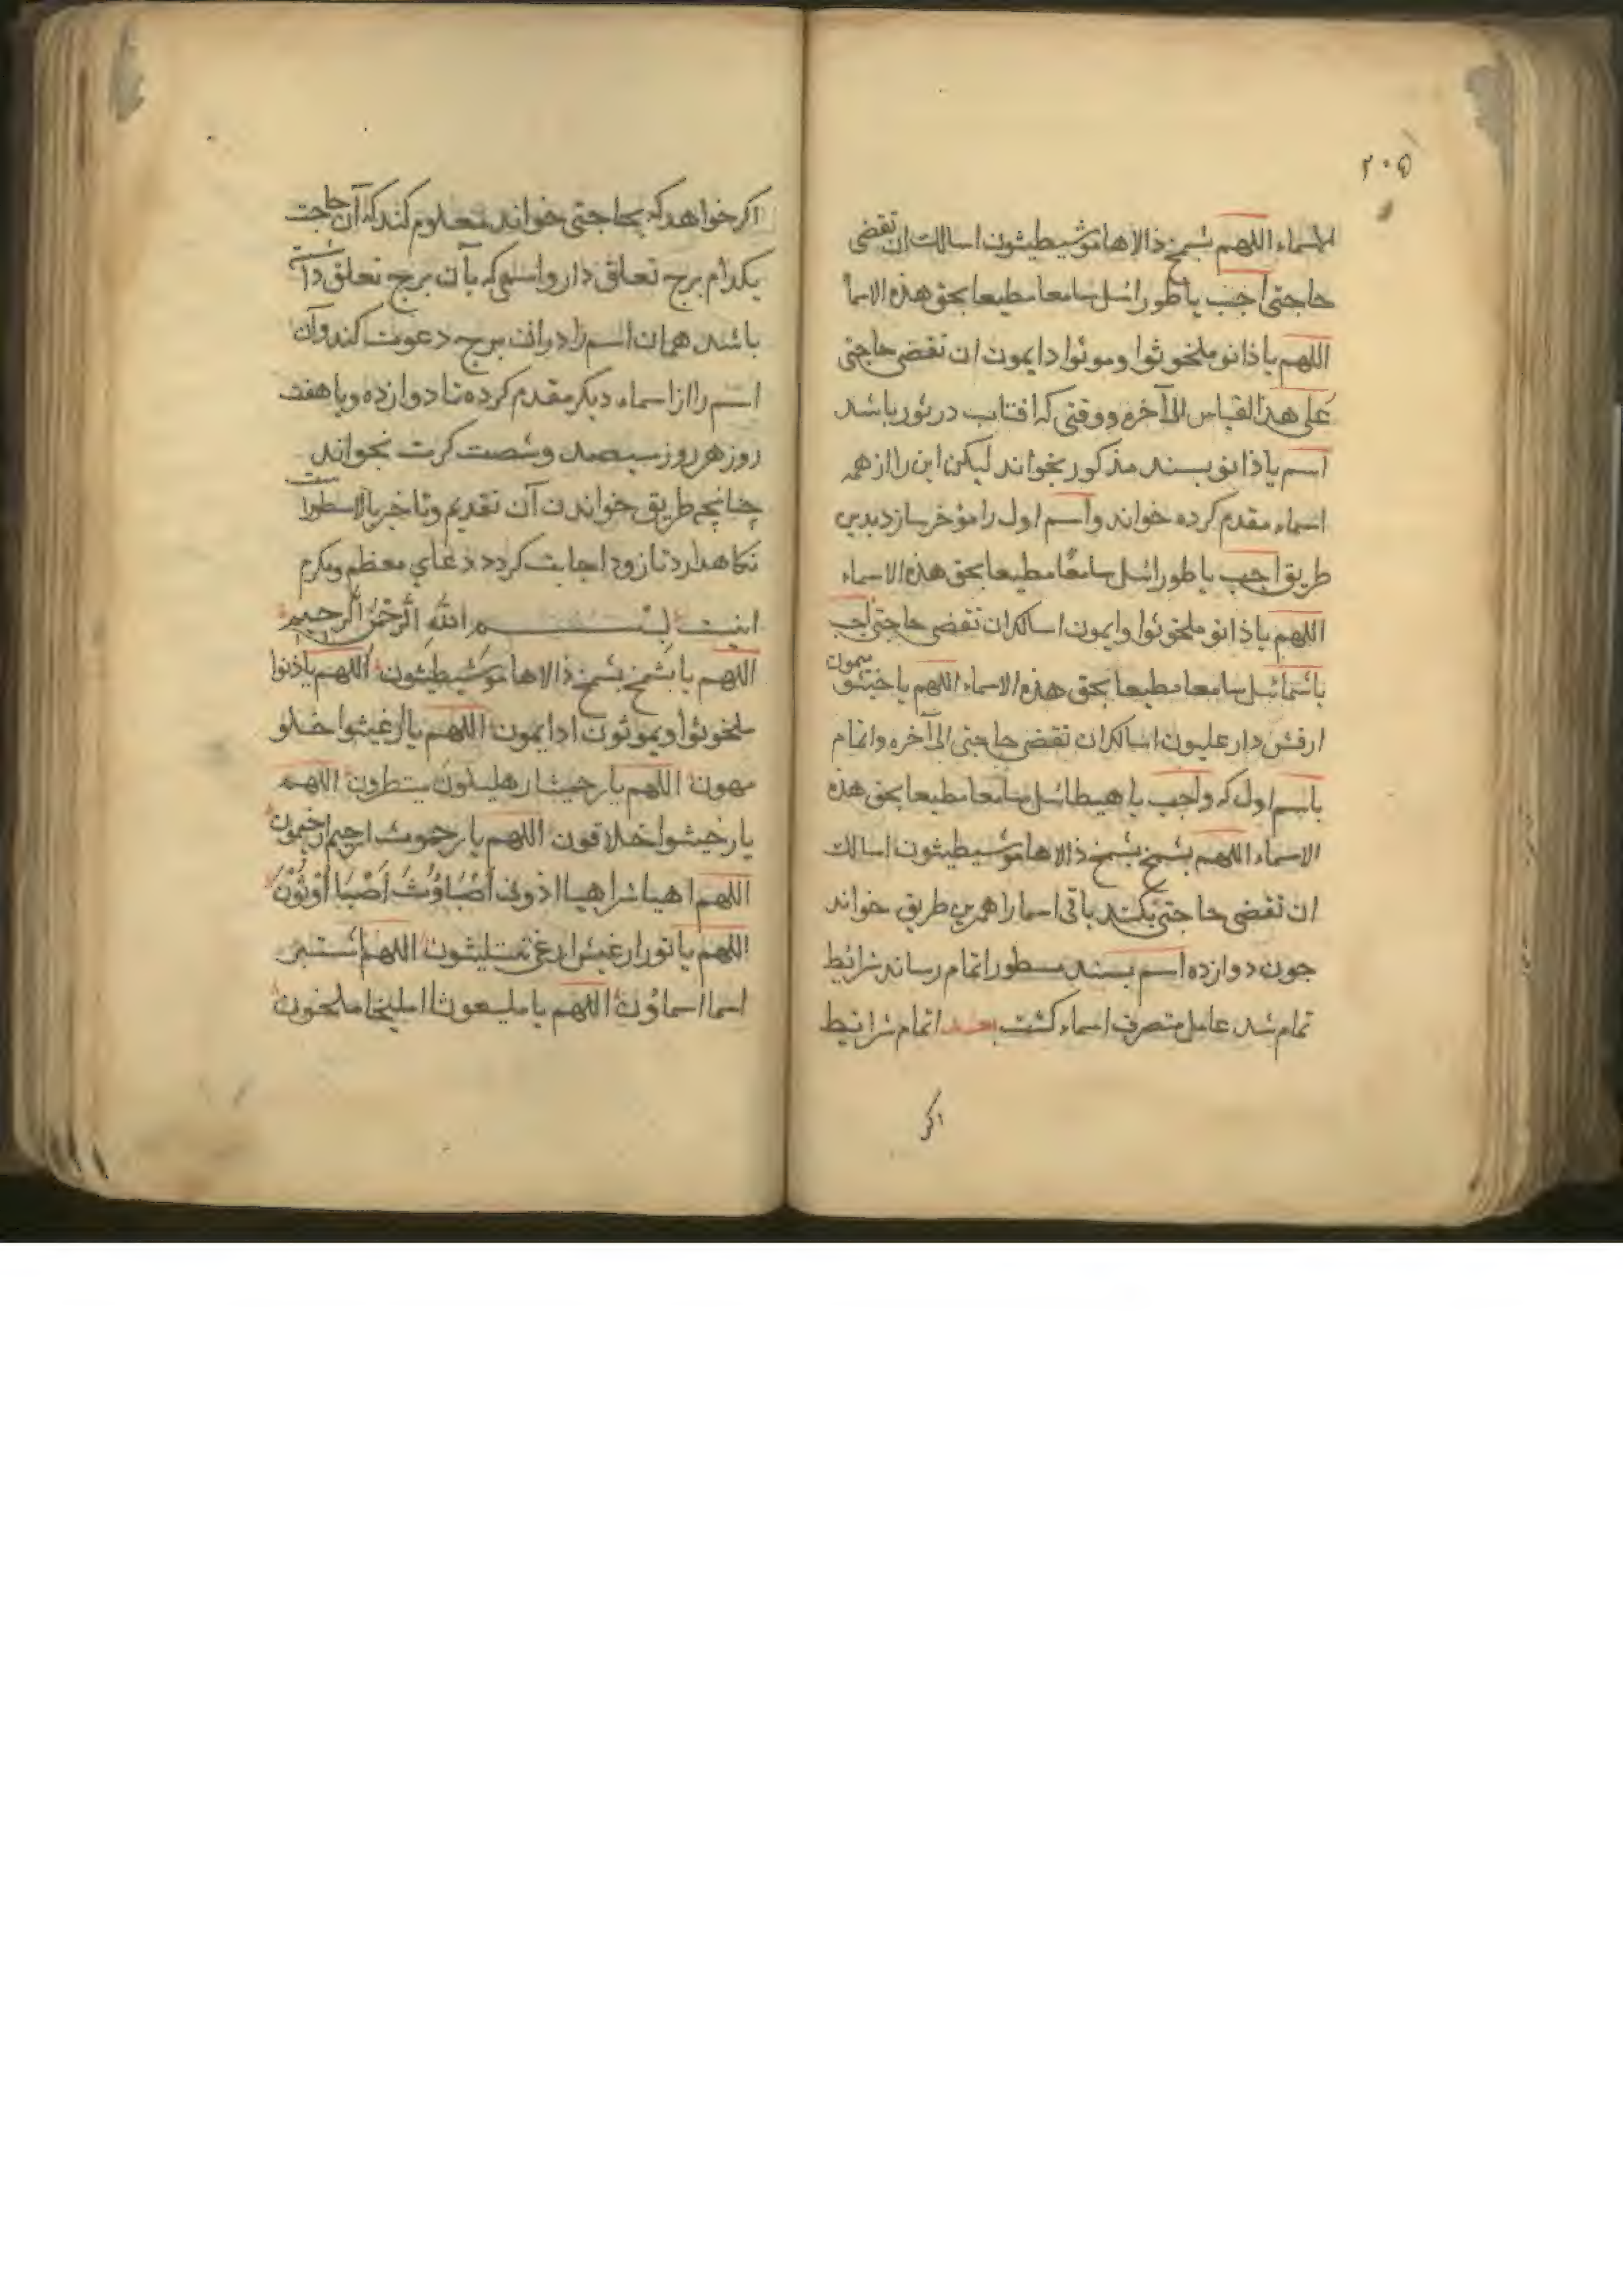 ۲۰۵
الاسماء اللهم بشمخ ذالاهاموشيطيثون اسالك ان تقضى
حاجتى اجب ياطورائيل سامعا مطيعا بحق هذه الاسما
اللهم ياذانو ملخوثوا وموثوا دايمون ان تقضى حاجتى
على هذا القياس الى آخره ووقتى كه افتاب در ثور باشد
اسم ياذانو بسند مذكور بخواند ليكن اين را از همه
اسماء مقدم كرده خواند واسم اول را مؤخر سازد بدين
طريق اجب ياطورائيل سامعًا مطيعا بحق هذه الاسماء
اللهم ياذانو ملخوثوا وايمون اسالك ان تقضى حاجتى اجب
سامعا مطيعا بحق هذه الاسماء اللهم ياخيثو ميمون
ارقش دار عليون اسالك ان تقضى حاجتى الى آخره واتمام
باسم اول كه واجب يا هيطائيل سامعا مطيعا بحق هذه
الاسماء اللهم بشمخ بشمخ ذالاهاموشيطيثون اسالك
ان تقضى حاجتى بكند باقى اسما را همرين طريق خواند
جون دوازده اسم بسند مسطور اتمام رساند شرائط
تمام شد عامل متصرف اسماء كشت بعد اتمام شرائيط
اكر
اكر خواهد كه بحاجتى خواند معلوم كند كه آن حاجت
بكدام برج تعلق دارد واسمى كه بآن برج تعلق داشته
باشد همان اسم را دران برج دعوت كند وآن
اسم را از اسماء ديكر مقدم كرده تا دوازده ويا هفت
روز هر روز سيصد وشصت كرت بخواند
چنانچه طريق خواندن آن تقديم وتاخير بالا مسطور است
نكاهدارد تا زود اجابت كردد دعاي معظم ومكرم
اينست بسم الله الرحمن الرحيم
اللهم يا بشمخ بشمخ ذالاهاموشيطيثون اللهم ياذنوا
ملخوثوا ويموثون ادايمون اللهم ياارغيثوا خلو
مهون اللهم يارحيثا رهليلون ميتطرون اللهم
يارخيثوا خلاقون اللهم يارحموث ارحيم ارخيمون
اللهم اهيا شراهيا اذونى اَصْبَاوُثَ اَصْبَا اُوْثُوْنَ
اللهم يانورا رغيش ارغى تثليثون اللهم اشتبر
اسما اسماؤن اللهم يا مليعوثا امليخا ملخون